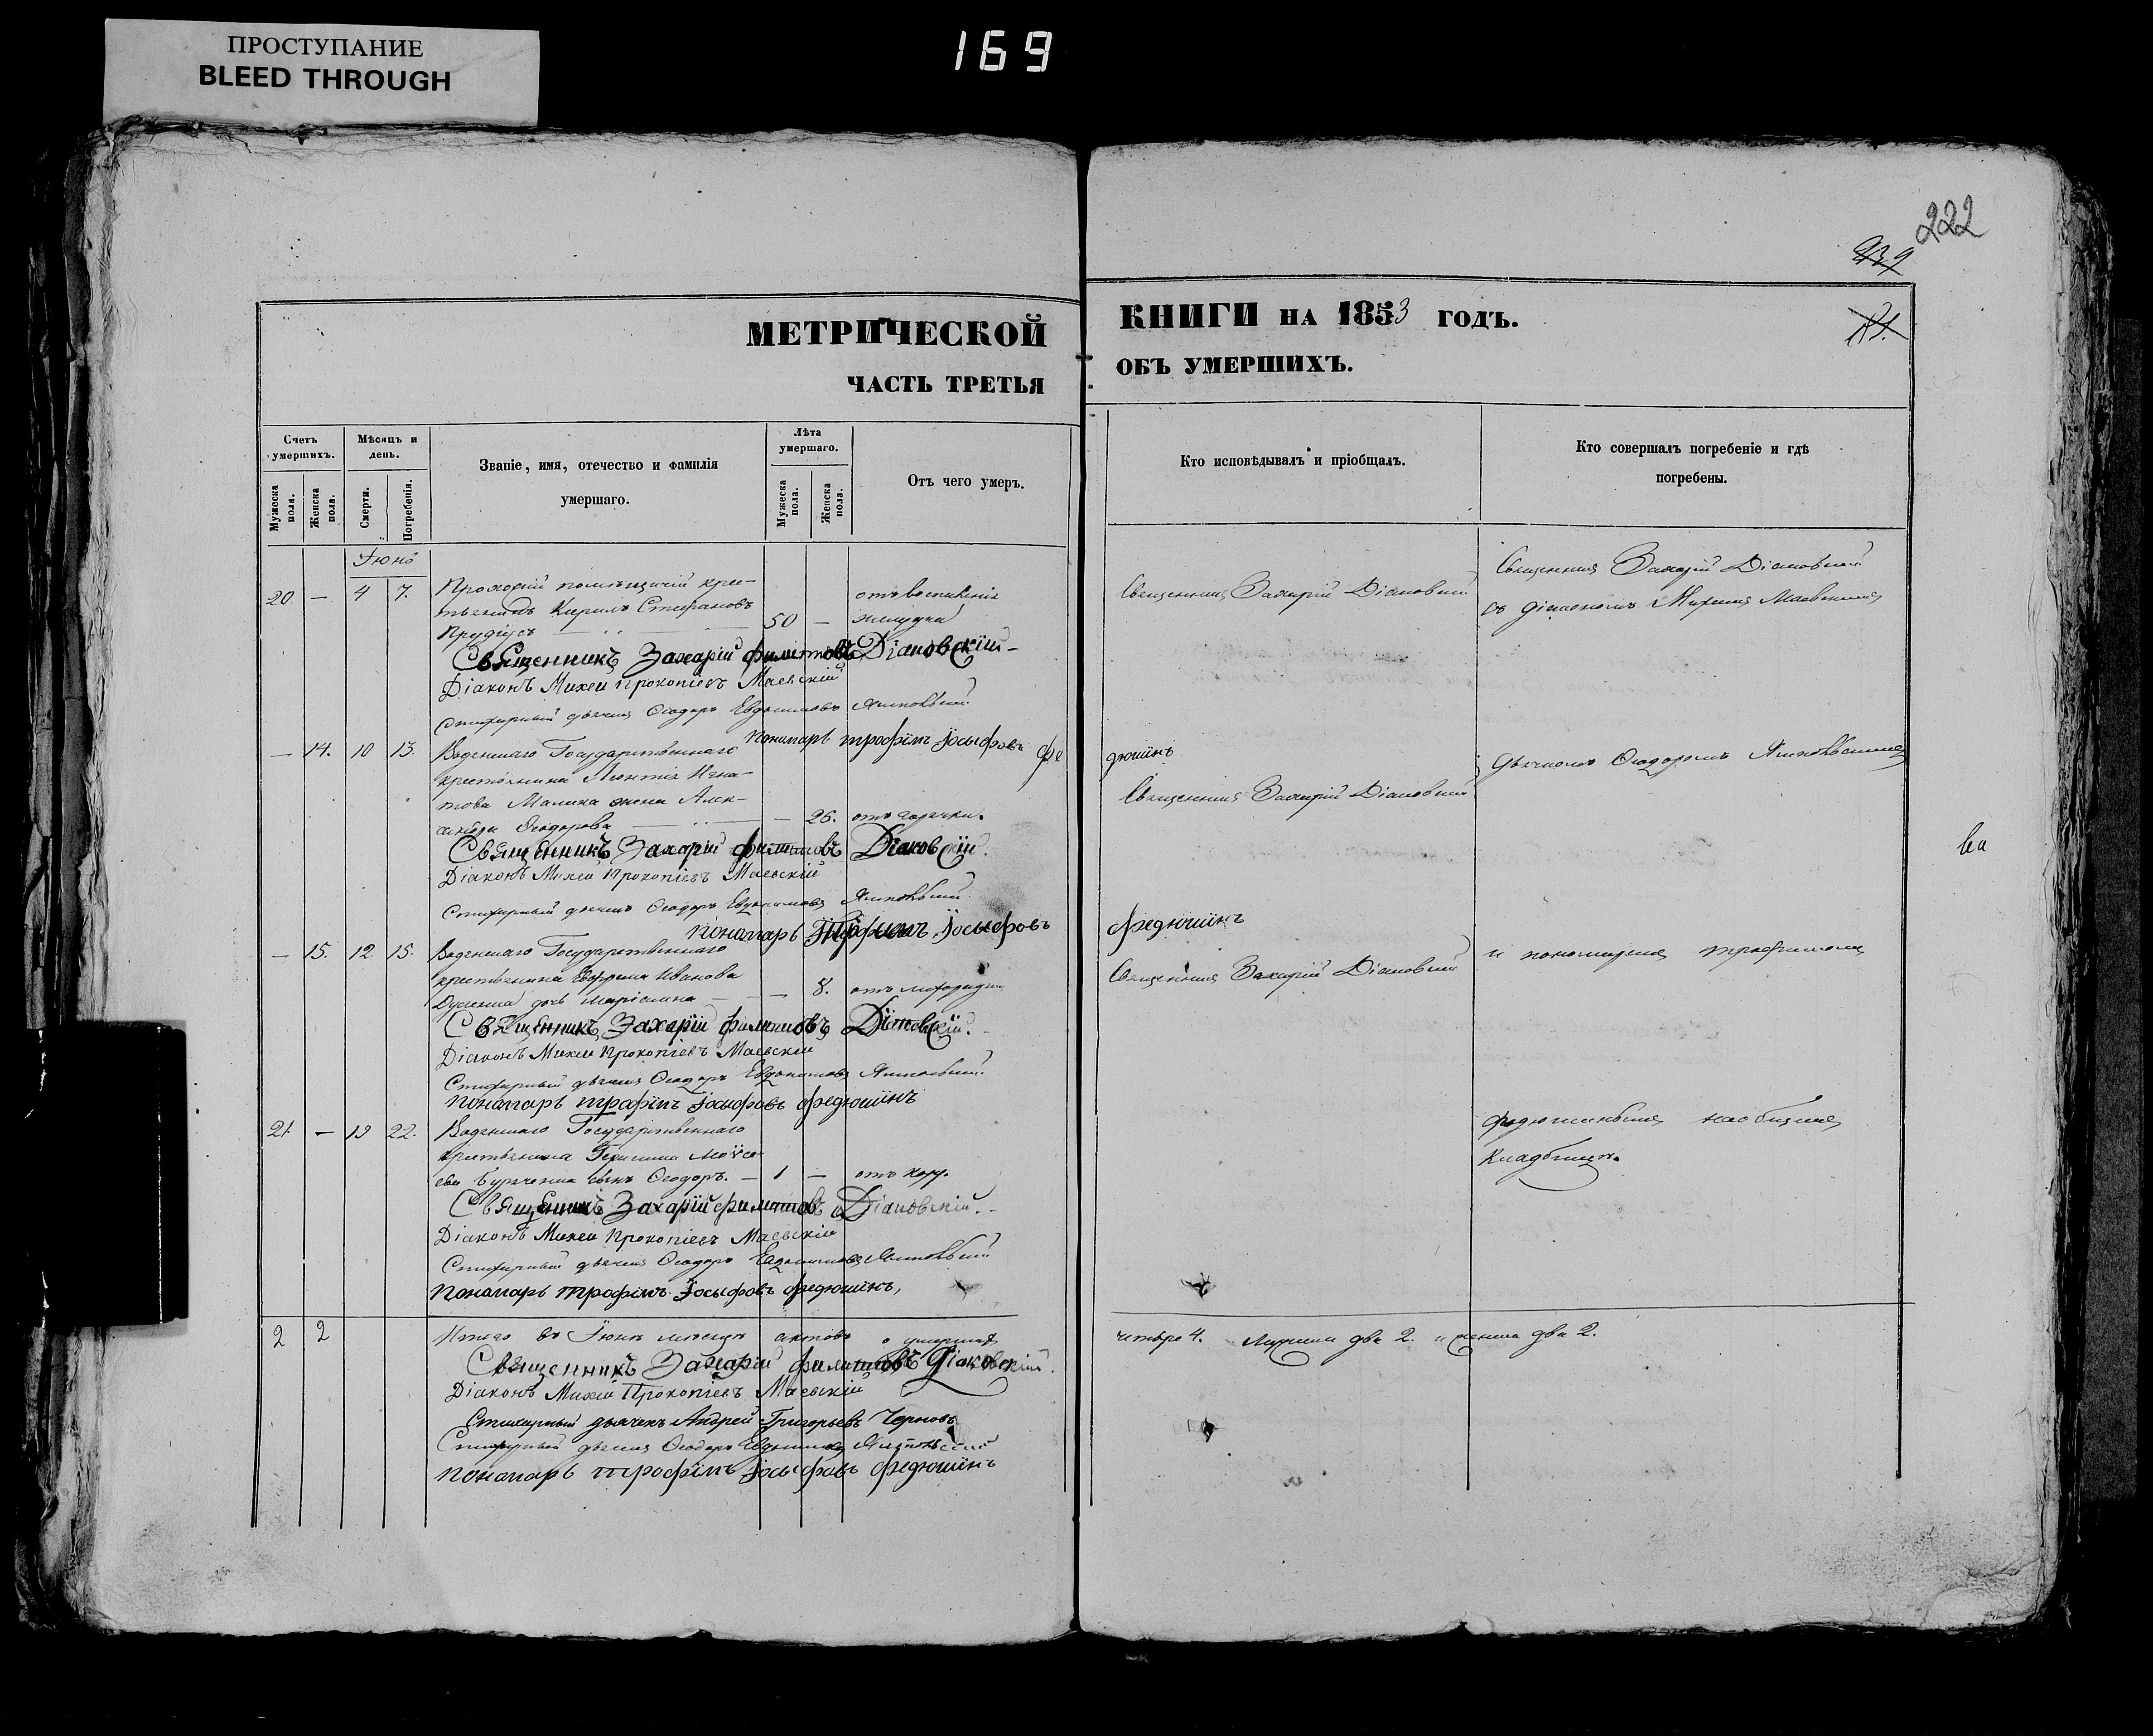 ПРОСТУПАНИЕ
BLEED THROUGH
169
222
239
МЕТРИЧЕСКОЙ
ЧАСТЬ ТРЕТЬЯ
КНИГИ НА 1853 ГОДЪ.
ОБЪ УМЕРШИХЪ.
Счетъ умершихъ.
Мужеска пола.
Женска пола.
Мѣсяцъ и день.
Смерти.
Погребенія.
Званіе, имя, отечество и фамилія
умершаго.
Лѣта умершаго.
Мужеска пола.
Женска пола.
Отъ чего умеръ.
Кто исповѣдывалъ и пріобщалъ.
Кто совершалъ погребеніе и гдѣ
погребены.
Іюнь
20. — 4 7. помѣщичій крес-
тьянинъ Кирилъ Стефановъ
50 — желудка
Священникъ Захарій Діаковскій
Священникъ Захарій Діаковскій
съ діакономъ Михеемъ Маевскимъ
Священникъ Захарій Филиповъ Діаковскій
Діаконъ Михей Прокопіевъ Маевскій
Стихарный дьячекъ Ѳеодоръ Евдокимовъ
Пономарь трофімъ Іосыфовъ Фе дюшінъ
— 14. 10 13. Государственнаго
крестьянина Леонтія Игна-
това жена Алек-
Ѳеодорова — 26. отъ горячки.
Священникъ Захарій Діаковскій
Дьячкомъ Ѳеодоромъ
Священникъ Захарій Филиповъ Діаковскій.
Діаконъ Михей Прокопіевъ Маевскій
Стихарный дьячекъ Ѳеодоръ Евдокимовъ
Пономарь Трофимъ Іосыфовъ Федюшінъ
— 15. 12 15. Государственнаго
крестьянина Ефрема Иванова
дочь Маріанна — — 8. отъ лихорадки
Священникъ Захарій Діаковскій
и пономаремъ трофимомъ
Священникъ Захарій Филиповъ Діаковскій.
Діаконъ Михей Прокопіевъ Маевскій
Стихарный дьячекъ Ѳеодоръ Евдокимовъ
Пономарь трофімъ Іосыфовъ Федюшінъ
21. — 19 22. Государственнаго
крестьянина Герасима Моѵсе-
ева сынъ Ѳеодоръ. — 1 —
Федюшинымъ
кладбищѣ.
Священникъ Захарій Филиповъ Діаковскій.
Діаконъ Михей Прокопіевъ Маевскій
Стихарный дьячекъ Ѳеодоръ Евдокимовъ
Пономарь трофімъ Іосыфовъ Федюшінъ,
2 2 Итого въ Іюнѣ мѣсяцѣ актовъ о умершихъ
четыре 4. Мужеска два 2. и женска два 2.
Священникъ Захарій Филиповъ Діаковскій.
Діаконъ Михей Прокопіевъ Маевскій
Стихарный дьячекъ Андрей Григорьевъ Черновъ
Стихарный дьячекъ Ѳеодоръ Евдокимовъ
Пономарь трофімъ Іосыфовъ Федюшінъ